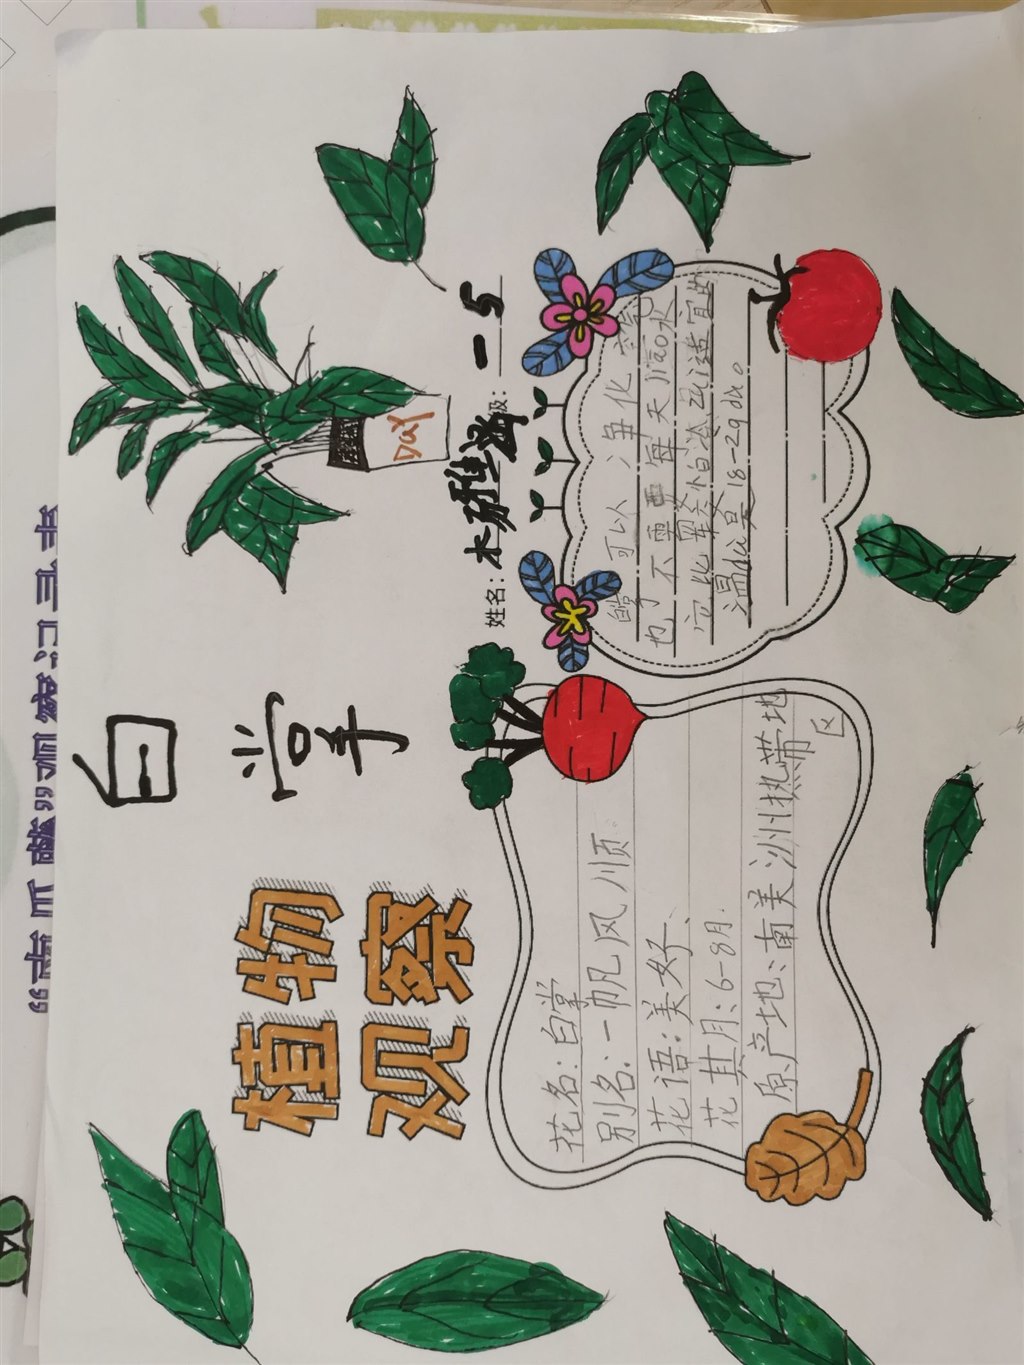 植物
观察
白
掌
姓名：木雅涵 级：一5
DAY
花名：白掌
别名：一帆风顺.
花语：美好、
花期：6-8月.
原产地：南美洲热带地
区
白掌可以净化空气
也不需要每天jiao水
它比较怕冷zui适宜的
温du是18-29du。